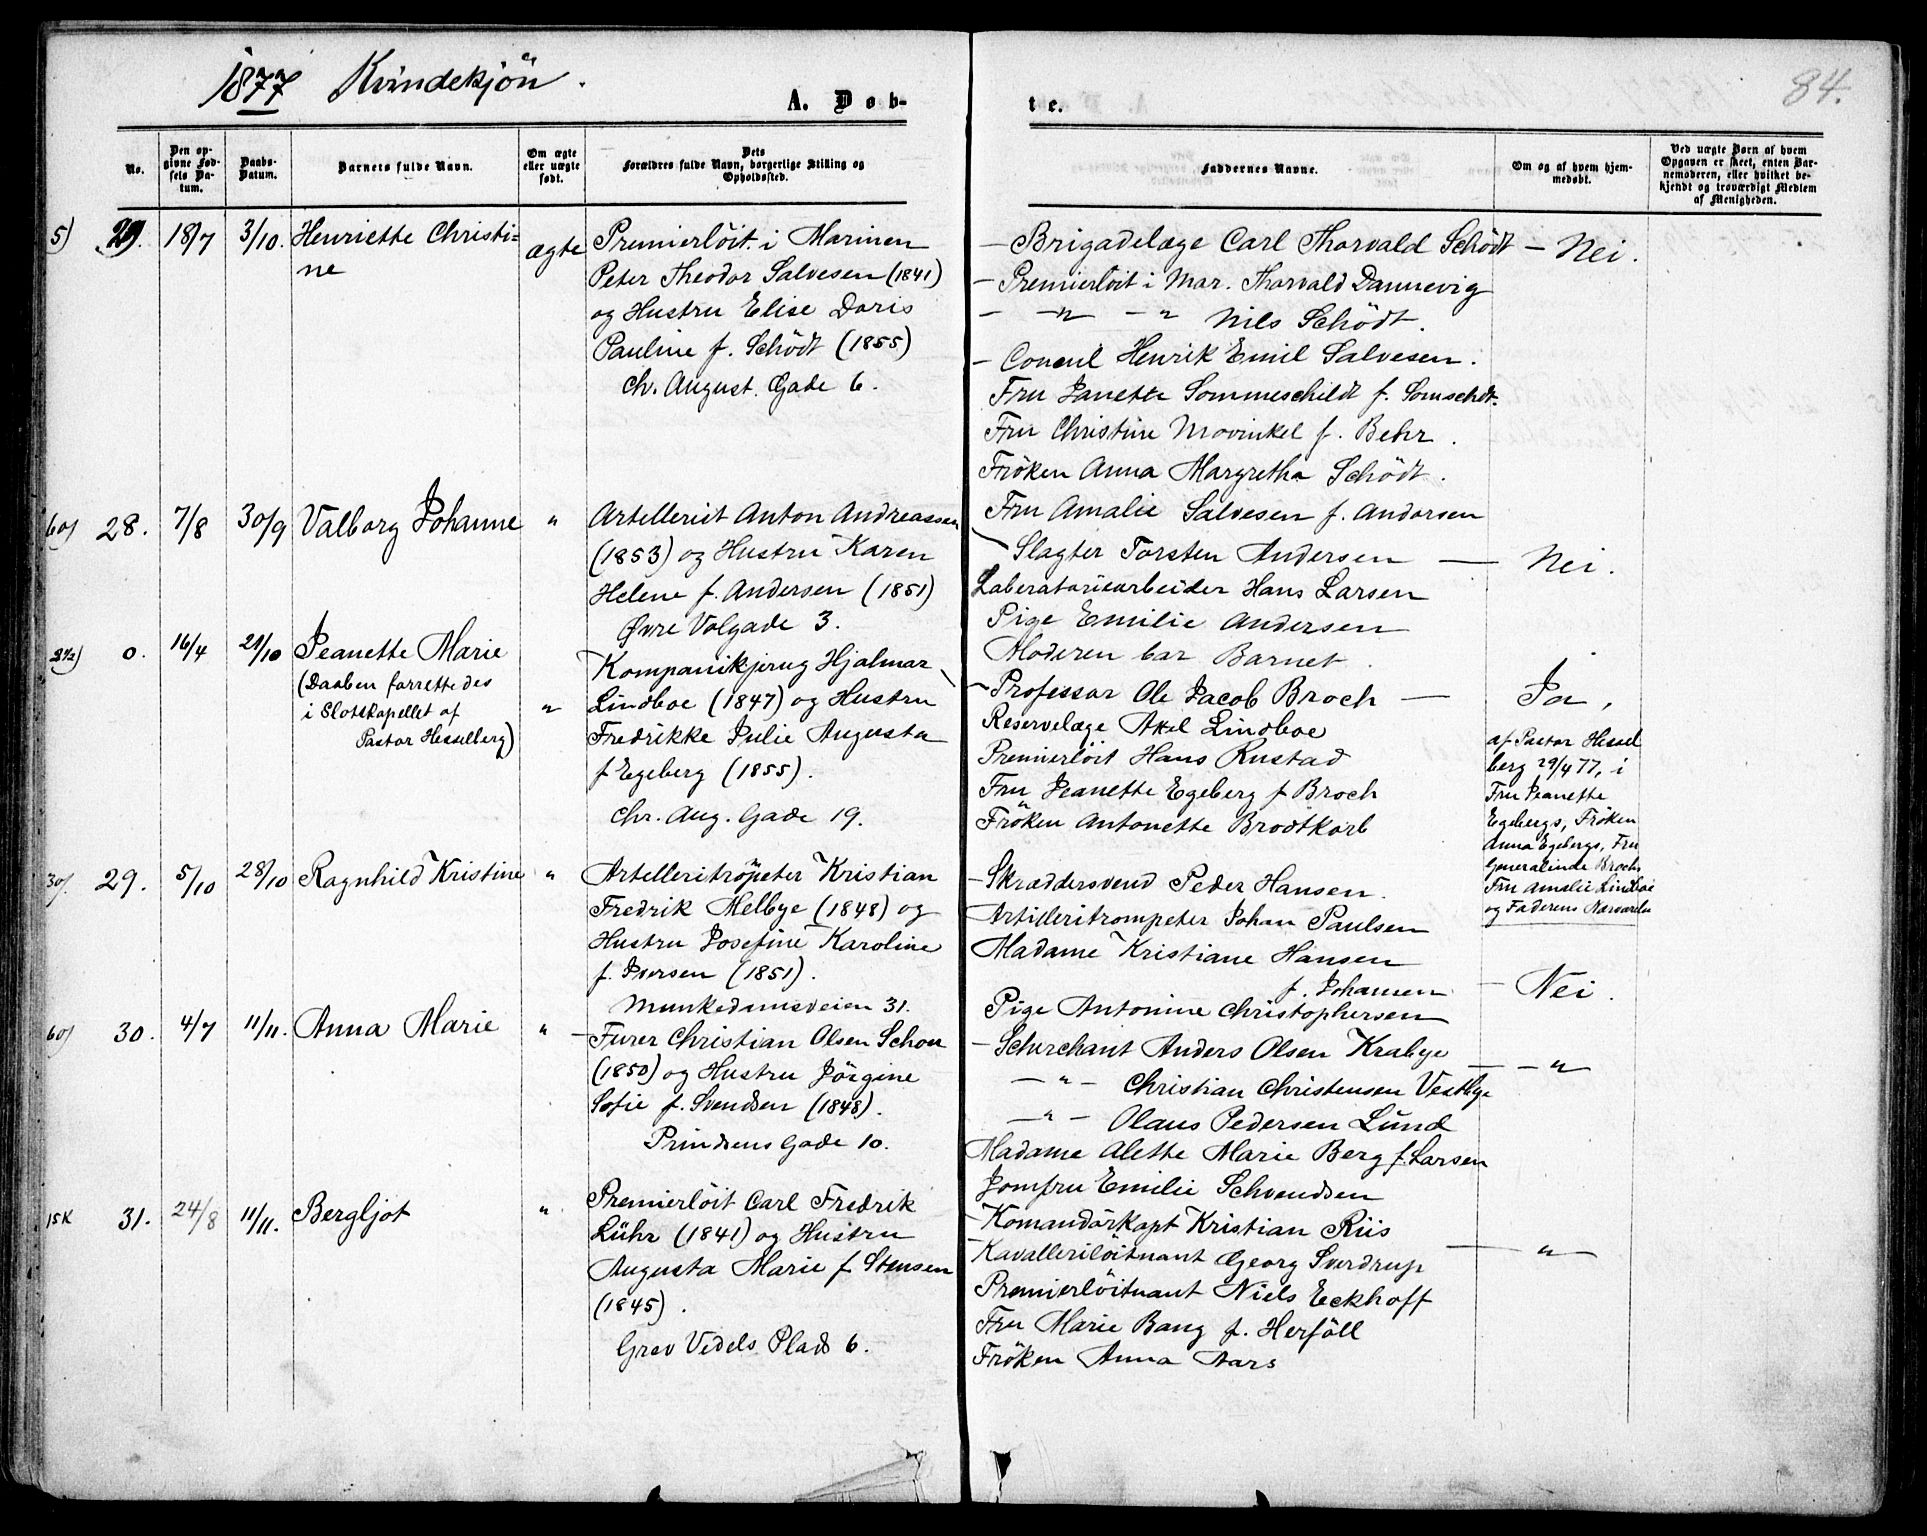 1877 Kvindekjön.
84.
A. Döb-
te.
No.
Den op-
givne Fød-
sels Da-
tum.
Daabs-
Datum.
Barnets fulde Navn.
Om ægte
eller uægte
født.
Dets
Forældres fulde Navn, borgerlige Stilling og
Opholdssted.
Faddernes Navne.
Om og af hvem hjem-
medøbt.
Ved uægte Børn af hvem
Opgaven er skeet, enten Bar-
nemoderen, eller hvilket be-
kjendt og troværdigt Medlem
af Menigheden.
5) 18/7 3/10. Henriette Christi=
ne
ægte
Premierlöit. i Marinen
Peter Theodor Salvesen (1841)
og Hustru Elise Doris
Pauline f. Schödt (1855)
Ch. August. Gade 6.
- Brigadelæge Carl Thorvald Schödt - Nei.
- Premierlöit i Mar. Thorvald Dannevig
- -"- -" Nils Schödt.
- Consul Henrik Emil Salvesen.
Fru Janette Sommeschildt f. Somschdt.
Fru Christine Movinkel f. Behr.
Fröken Anna Margretha Schödt.
Fru Amalie Salvesen f. Andorsen
60) 28. 7/8 30/9 Valborg Johanne "
Artellerist Anton Andreassen
(1853) og Hustru Karen
Helene f. Andersen (1851)
Øvre Volgade 3.
Slagter Torsten Andersen — Nei.
Laberatoriearbeider Hans Larsen
Pige Emilie Andersen
Moderen bar Barnet.
0. 16/4 21/10 Jeanette Marie
(Daaben forrettedes
i Slotskapellet af
Pastor Hesselberg)
"
Kompanikjrug Hjalmar
Lindboe (1847) og Hustru
Fredrikke Julie Augusta
f Egeberg (1855).
Chr. Aug. Gade 19.
- Professor Ole Jacob Broch —
Reservelæge Axel Lindboe
Premierlöit Hans Rustad
Fru Jeanette Egeberg f Broch
Fröken Antonette Brodtkorb
Ja,
af Pastor Hessel
berg 29/4 77, i
Fru Jeanette
Egebergs, Fröken
Anna Egebergs, Fru
Generalinde Brochs
Fru Amalie Lindboe
og Faderens Nærværelse
30/. 29. 5/10 28/10 Ragnhild Kristine "
Artelleritröpeter Kristian
Fredrik Melbye (1848) og
Hustru Josefine Karoline
f. Iversen (1851).
Munkedamsveien 31.
- Skræddersvend Peder Hansen.
Artilleritrompeter Johan Paulsen
Madame Kristiane Hansen
f. Johansen — Nei.
Pige Antonine Christophersen
60) 30. 4/7 11/11. Anna Marie "
Furer Christian Olsen Schou
(1850) og Hustru Jörgine
Sofie f. Svendsen (1848).
Prindsens Gade 10.
- Scherchant Anders Olsen Krabye
— " — Christian Christensen Vestbye
— " — Olaus Pedersen Lund
Madame Alette Marie Berg f. Larsen
Jomfru Emilie Schvendsen
— " —
15K 31. 24/8 11/11. Bergljot "
Premierlöit Carl Fredrik
Lühr (1841) og Hustru
Augusta Marie f Stensen
(1845).
Grev Vedels Plads 6.
- Komandörkapt Kristian Riis
- Kavallerilöitnant Georg Sverdrup
Premierlöitnant Niels Eckhoff
Fru Marie Bang f. Herföll
Fröken Anna Aars
— " —